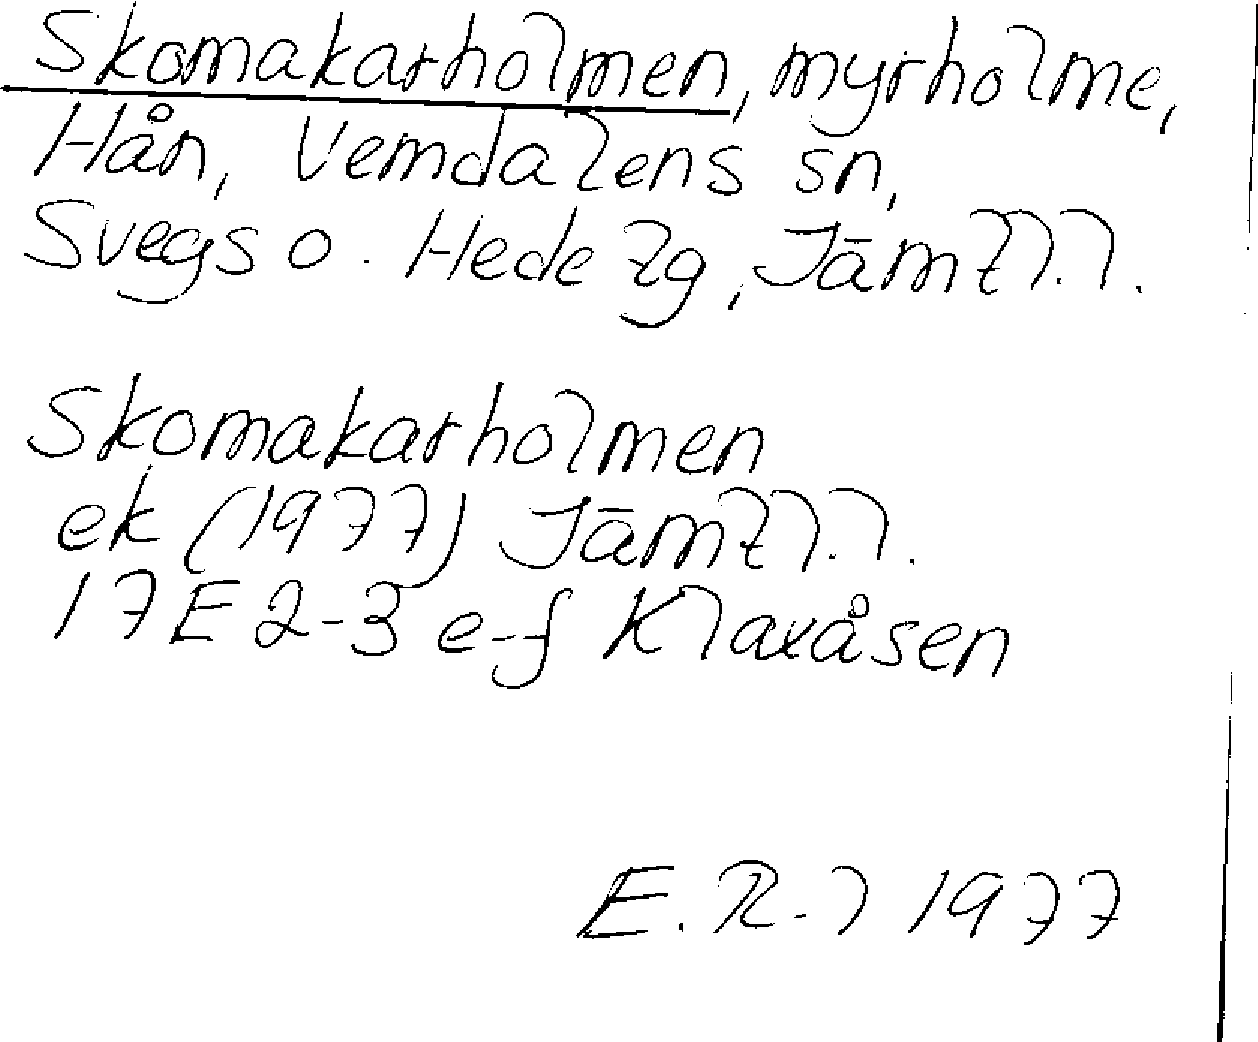 Skomakarholmen, myrholme,
Hån, Vemdalens sn,
Svegs o. Hede lg, Jämtl.l.
Skomakarholmen
ek (1977) Jämtl.l.
17E 2-3 e-f Klaxåsen
E. R-l 1977